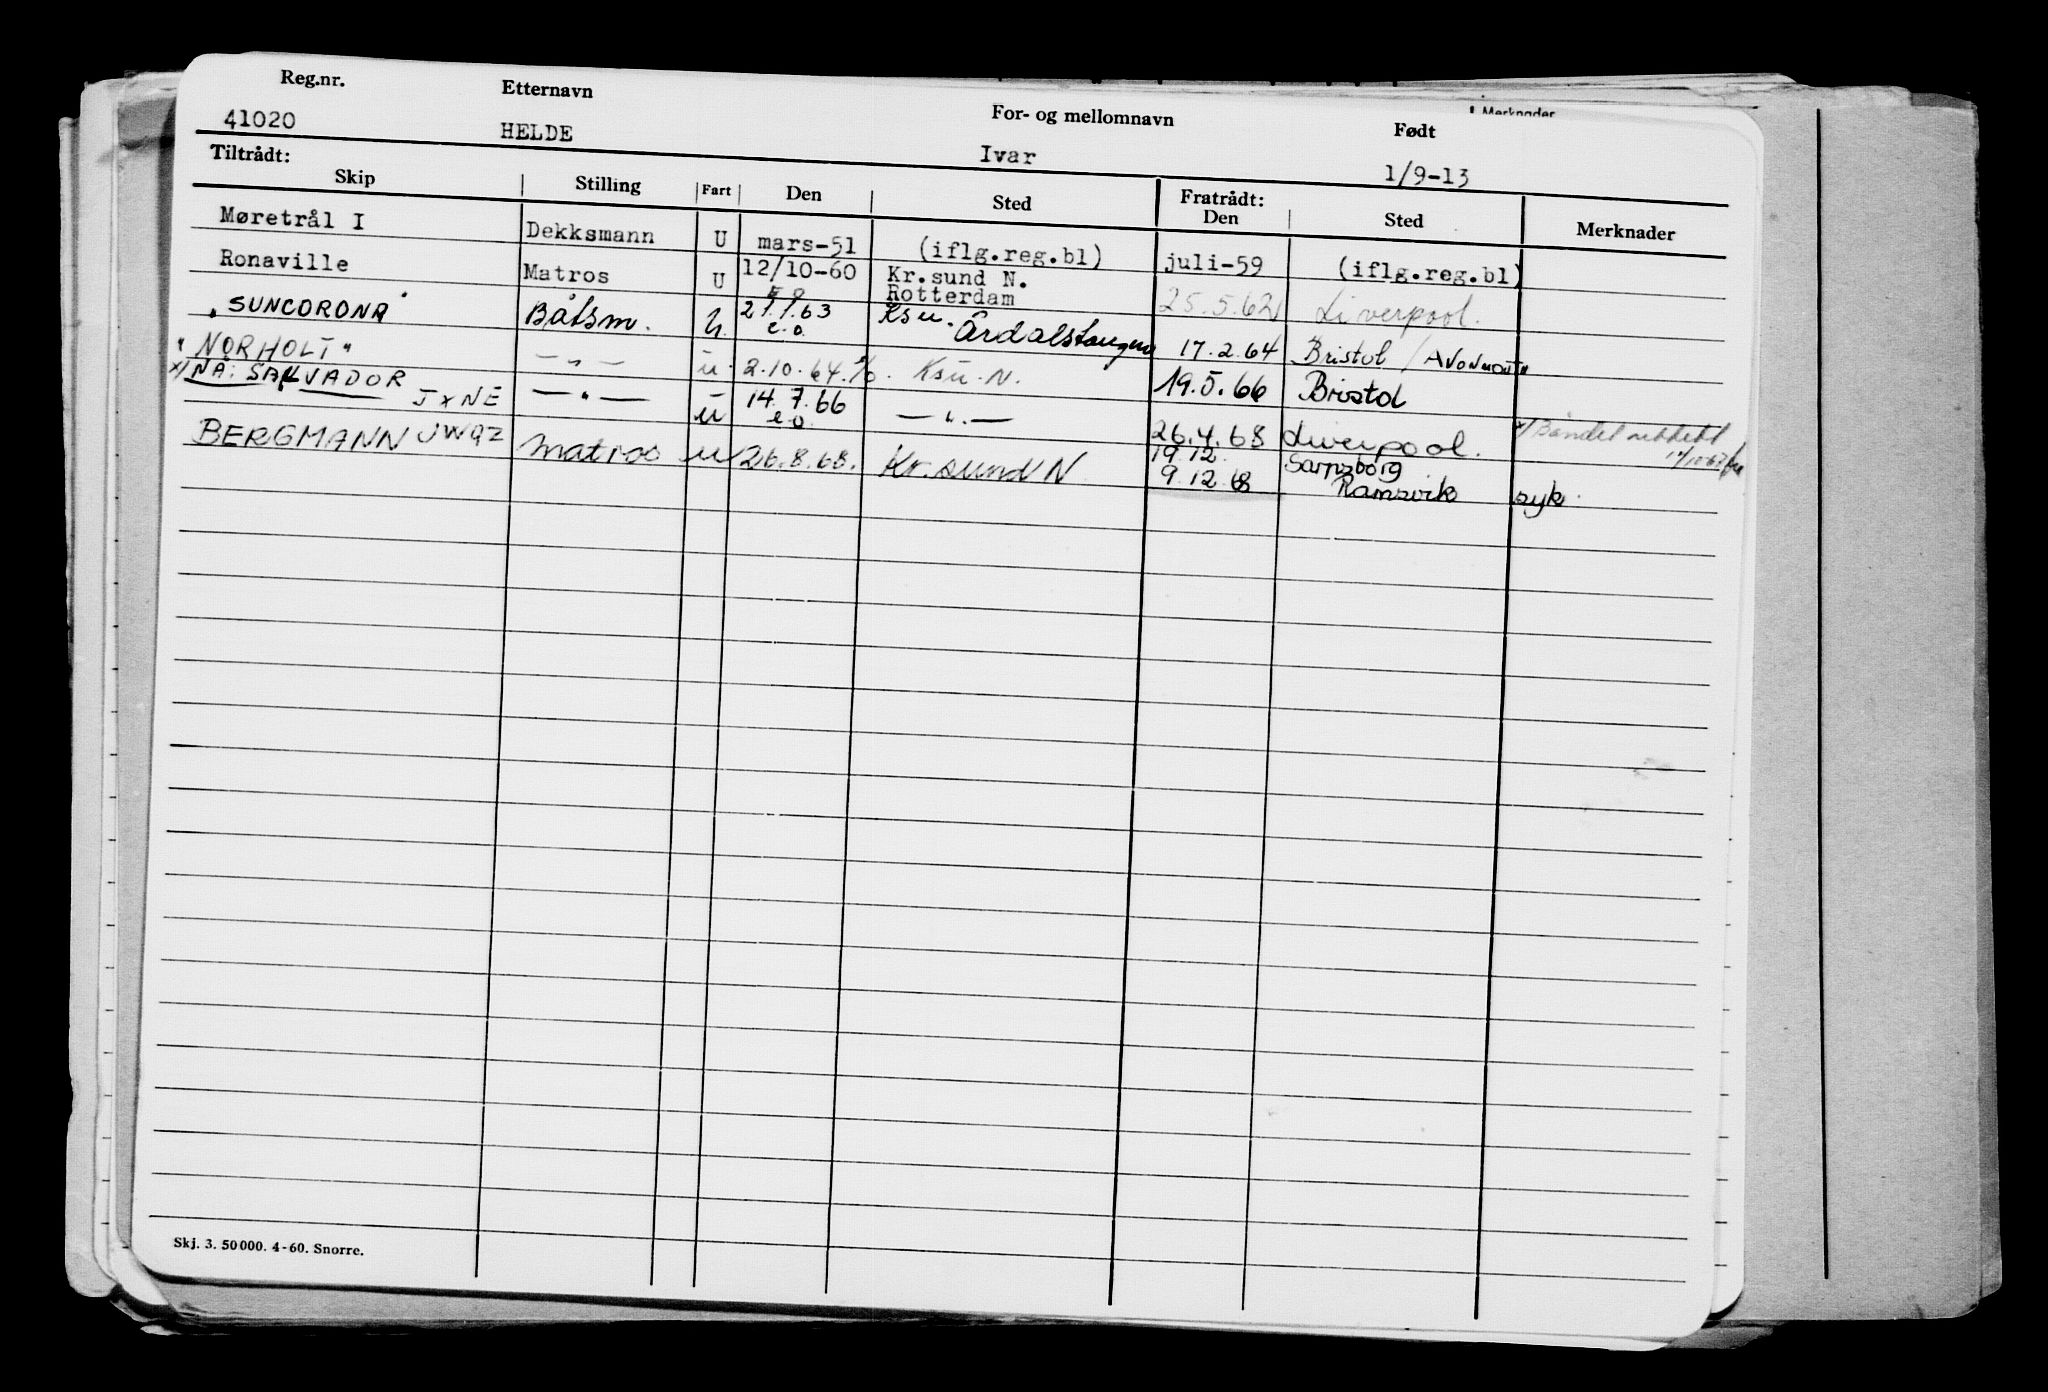 Merknader
Reg.nr. Etternavn For- og mellomnavn Født
41020 HELDE Ivar 1/9-13
Tiltrådt: Fratrådt:
Skip Stilling Fart Den Sted Den Sted Merknader
Møretrål I Dekksmann U mars-51 (iflg.reg.bl) juli-59 (iflg.reg.bl)
Ronaville Matros U 12/10-60 Kr.sund N. Rotterdam 25.5.62 Liverpool.
"SUNCORONA" Båtsm. U. 63 e.o. Ksu. Årdalstangen 17.2.64 Bristol / Avonmouth
"NORHOLT" — " — u. 2.10.64 Ksu. N. 19.5.66 Bristol
x/ NÅ: SALVADOR JXNE — " — u 14.7.66 e.o. — " — 26.4.68 Liverpool. x/
BERGMANN JWQZ matros u 26.8.68. Kr.sund N 19.12. Sarpsborg
9.12.68 Ramsvik syk.
Skj. 3. 50000. 4-60. Snorre.